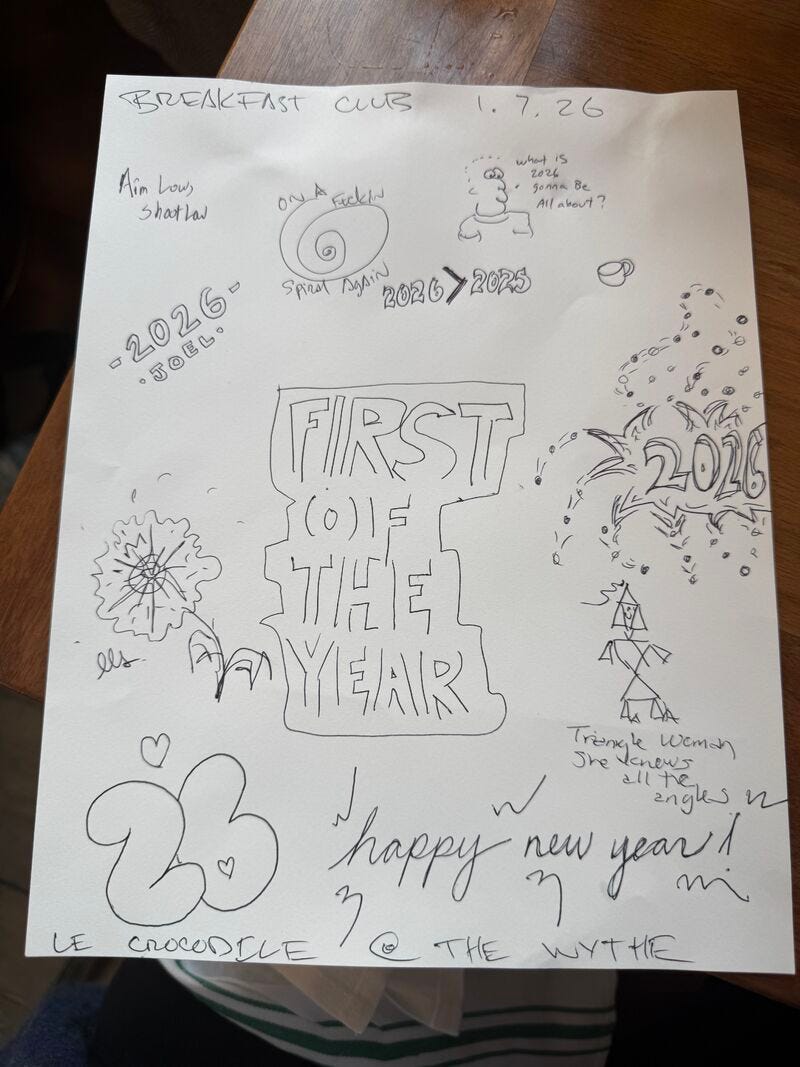 BREAKFAST CLUB 1.7.26
Aim Low,
Shoot Low
ON A Fuckin
Spiral Again
what is
2026
gonna Be
All about?
2026 > 2025
-2026-
·JOEL·
2026
FIRST
(O)F
THE
YEAR
Triangle Woman
She knows
all the
angles
26
happy new year!
LE CROCODILE @ THE WYTHE